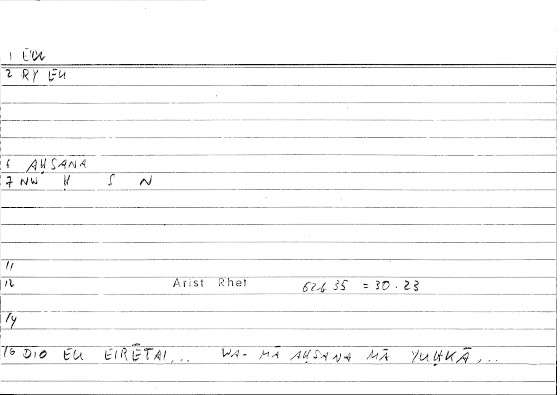 1 EU
2 RY EU
6 AḤSANA
7 NW Ḥ S N
11
12 Arist Rhet 62b 35 = 30.23
14
16 DIO EU EIRĒTAI,... WA-MĀ AḤSANA MĀ YUḤKĀ,...